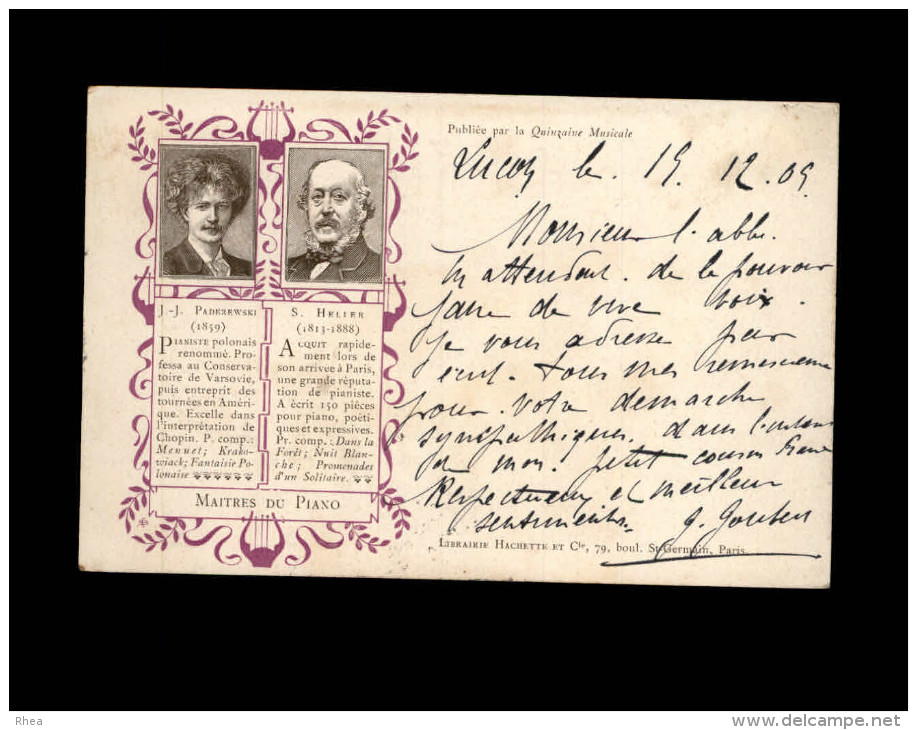 J.-J. PADEREWSKI
(1859)
PIANISTE polonais
renommé. Pro-
fessa au Conserva-
toire de Varsovie,
puis entreprit des
tournées en Améri-
que. Excelle dans
l'interprétation de
Chopin. P. comp. :
Menuet; Krako-
wiack; Fantaisie Po-
lonaise
S. HELLER
(1813-1888)
ACQUIT rapide-
ment lors de
son arrivée à Paris,
une grande réputa-
tion de pianiste.
A écrit 150 pièces
pour piano, poéti-
ques et expressives.
Pr. comp. : Dans la
Forêt; Nuit Blan-
che; Promenades
d'un Solitaire.
MAITRES DU PIANO
Publiée par la Quinzaine Musicale
Luçon le 15 12.05
Monsieur l'abbé.
En attendant de le pouvoir
faire de vive voix.
je vous adresse par
écrit. tous mes remerciements
pour votre démarche
sympathique, dans l'intérêt
de mon petit cousin
Respectueux et meilleurs
sentiments.
LIBRAIRIE HACHETTE ET Cie, 79, boul. St-Germain, Paris.
Rhea
www.delcampe.net